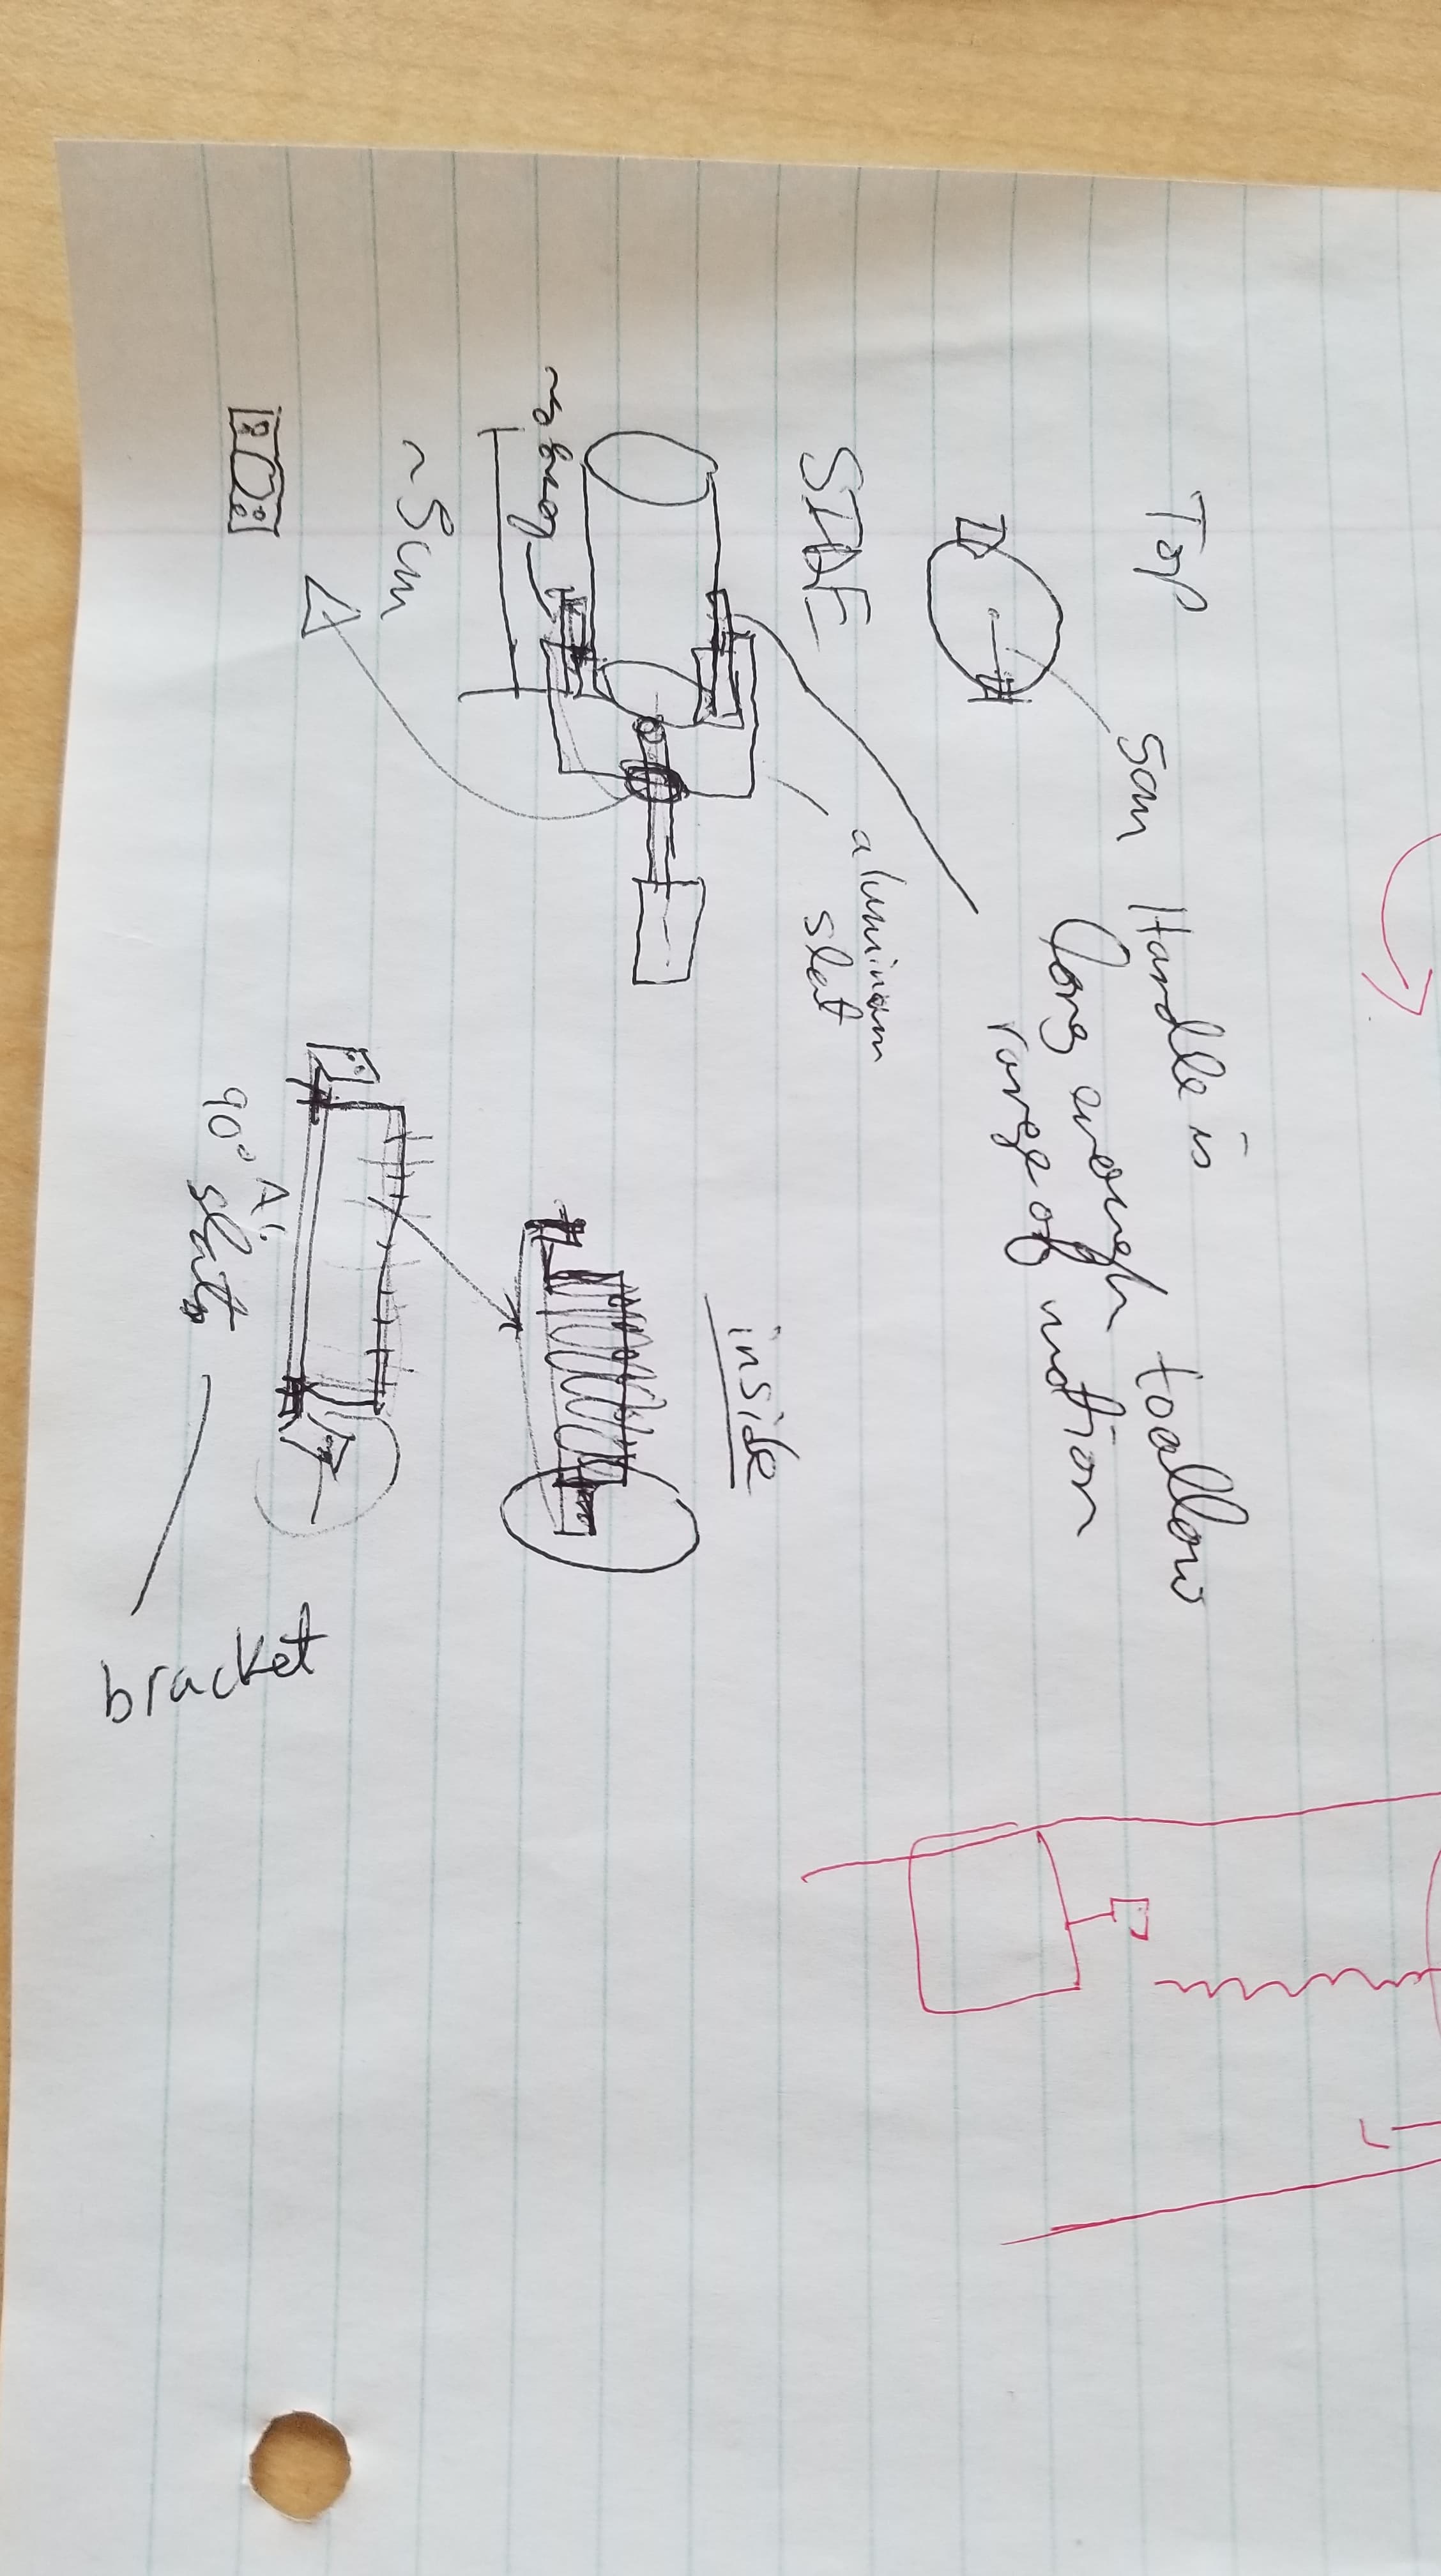 Top
5cm
Handle is
long enough to allow
range of motion
SIDE
aluminum
slat
inside
~5cm
Al.
90° slats
bracket